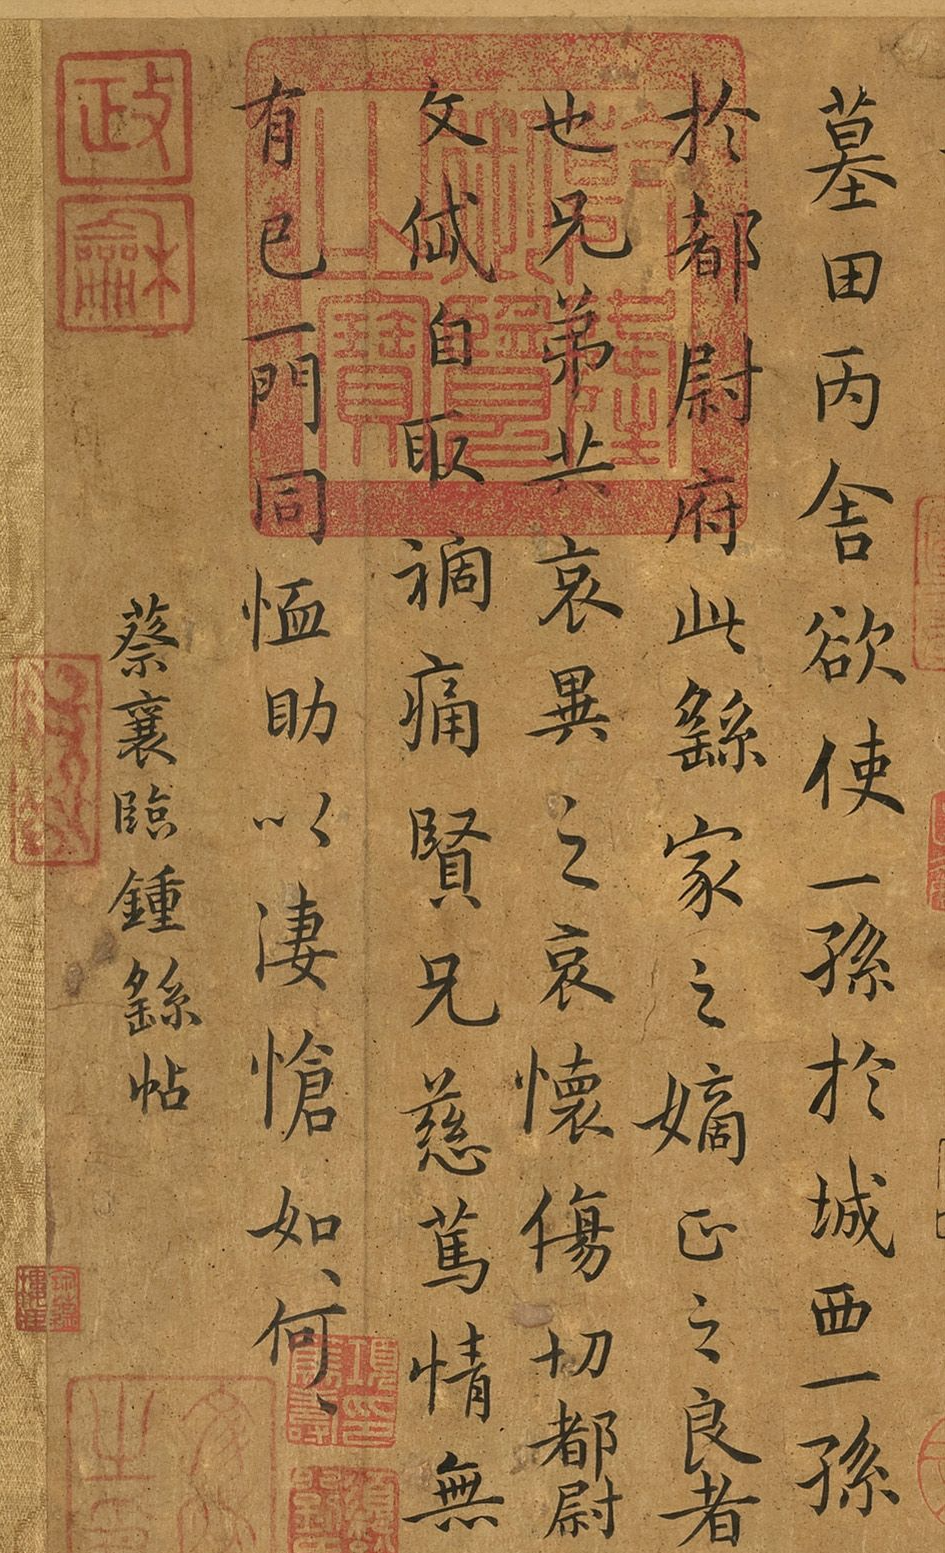 墓田丙舍欲使一孫於城西一孫
於都尉府此繇家之嫡正之良者
也兄弟共哀異之哀懷傷切都尉
文岱自取禍痛賢兄慈篤情無
有已一門同恤助以淒愴如、何、
蔡襄臨鍾繇帖
政龢